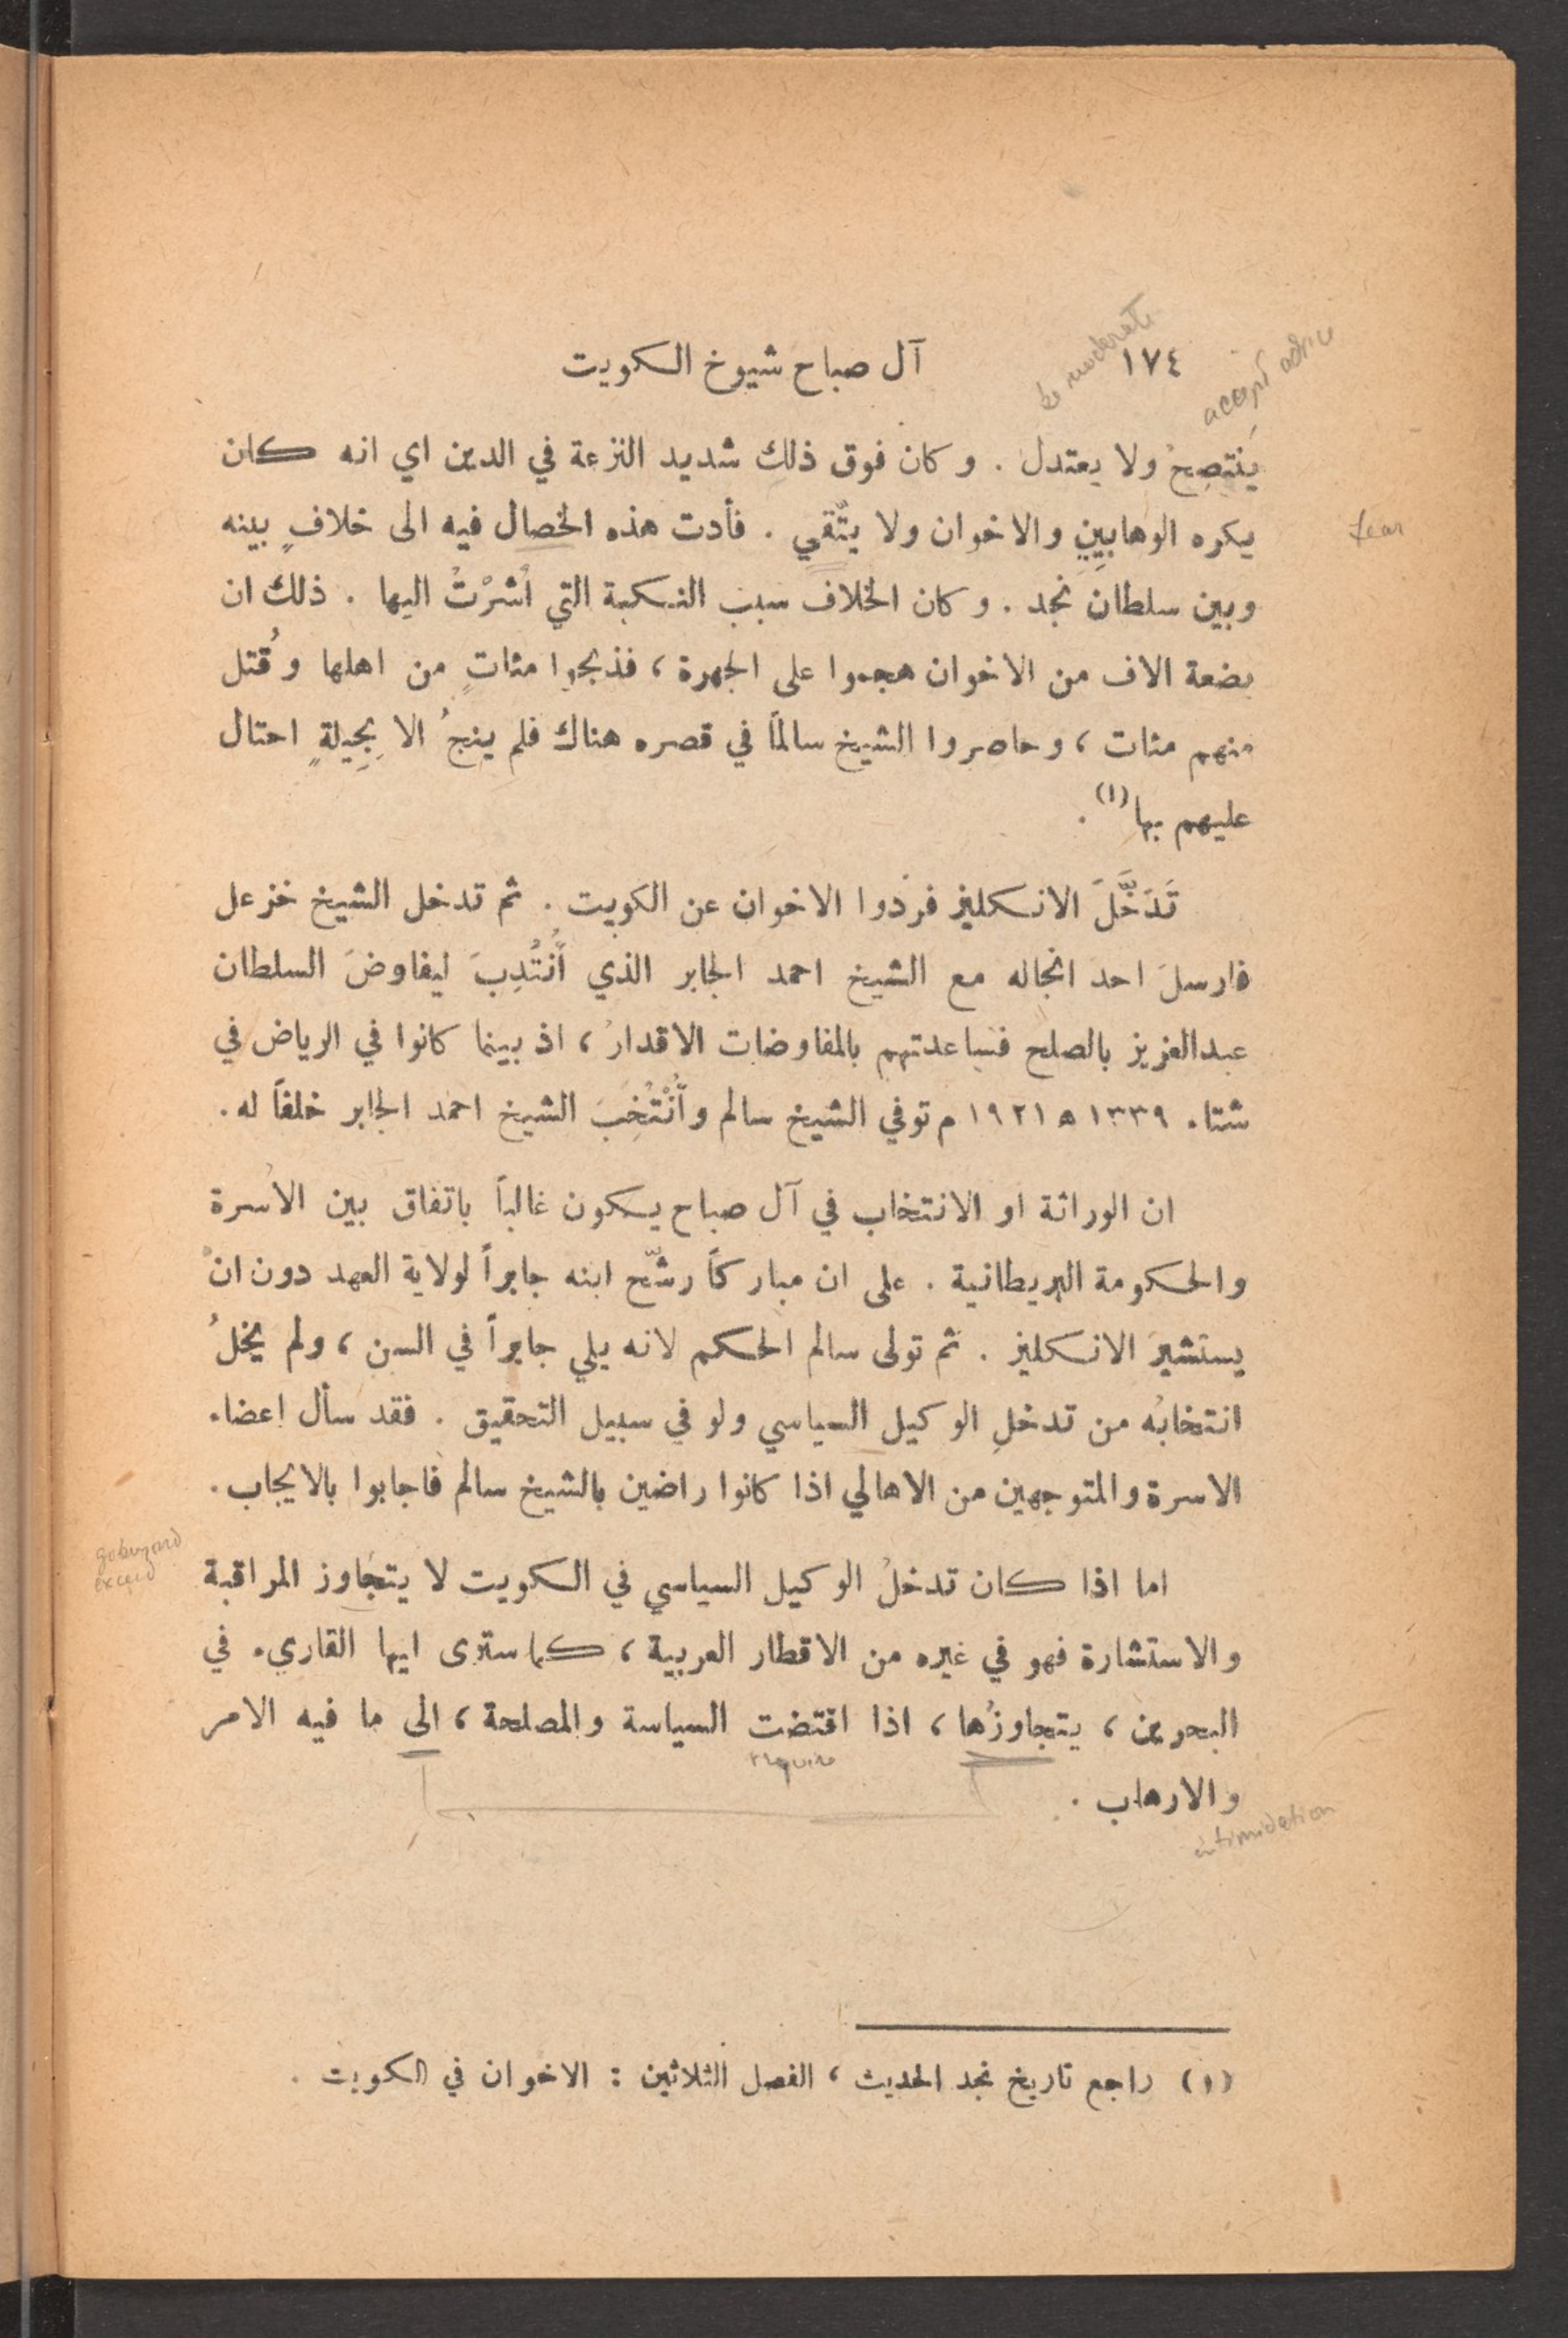 be moderate
accept advice
١٧٤ آل صباح شيوخ الكويت
يَنْتصِحُ ولا يعتدل . وكان فوق ذلك شديد النزعة في الدين اي انه كان
يكره الوهابيين والاخوان ولا يتّقي . فأدت هذه الخصال فيه الى خلافٍ بينه
fear
وبين سلطان نجد . وكان الخلاف سبب النكبة التي اشرْتُ اليها . ذلك ان
بضعة الاف من الاخوان هجموا على الجهرة ، فذبحوا مئاتٍ من اهلها وقُتل
منهم مئات ، وحاصروا الشيخ سالماً في قصره هناك فلم ينجُ الا بِحِيلةٍ احتال
عليهم بها (١) .
تَدَخَّلَ الانكليز فردوا الاخوان عن الكويت . ثم تدخل الشيخ خزعل
فارسلَ احد انجاله مع الشيخ احمد الجابر الذي اُنْتُدِبَ ليفاوضَ السلطان
عبدالعزيز بالصلح فساعدتهم بالمفاوضات الاقدارُ ، اذ بينما كانوا في الرياض في
شتاء ١٣٣٩ ه ١٩٢١ م توفي الشيخ سالم واُنْتُخِبَ الشيخ احمد الجابر خلفاً له .
ان الوراثة او الانتخاب في آل صباح يكون غالباً باتفاق بين الاُسرة
والحكومة البريطانية . على ان مباركاً رشّح ابنه جابراً لولاية العهد دون انْ
يستشيرَ الانكليز . ثم تولى سالم الحكم لانه يلي جابراً في السن ، ولم يخلُ
انتخابُه من تدخلِ الوكيل السياسي ولو في سبيل التحقيق . فقد سأل اعضاء
الاسرة والمتوجهين من الاهالي اذا كانوا راضين بالشيخ سالم فاجابوا بالايجاب .
go beyond
exceed
اما اذا كان تدخلُ الوكيل السياسي في الكويت لا يتجاوز المراقبة
والاستشارة فهو في غيره من الاقطار العربية ، كما سترى ايها القاريء في
البحرين ، يتجاوزُها ، اذا اقتضت السياسة والمصلحة ، الى ما فيه الامر
require
والارهاب .
intimidation
(١) راجع تاريخ نجد الحديث ، الفصل الثلاثين : الاخوان في الكويت .